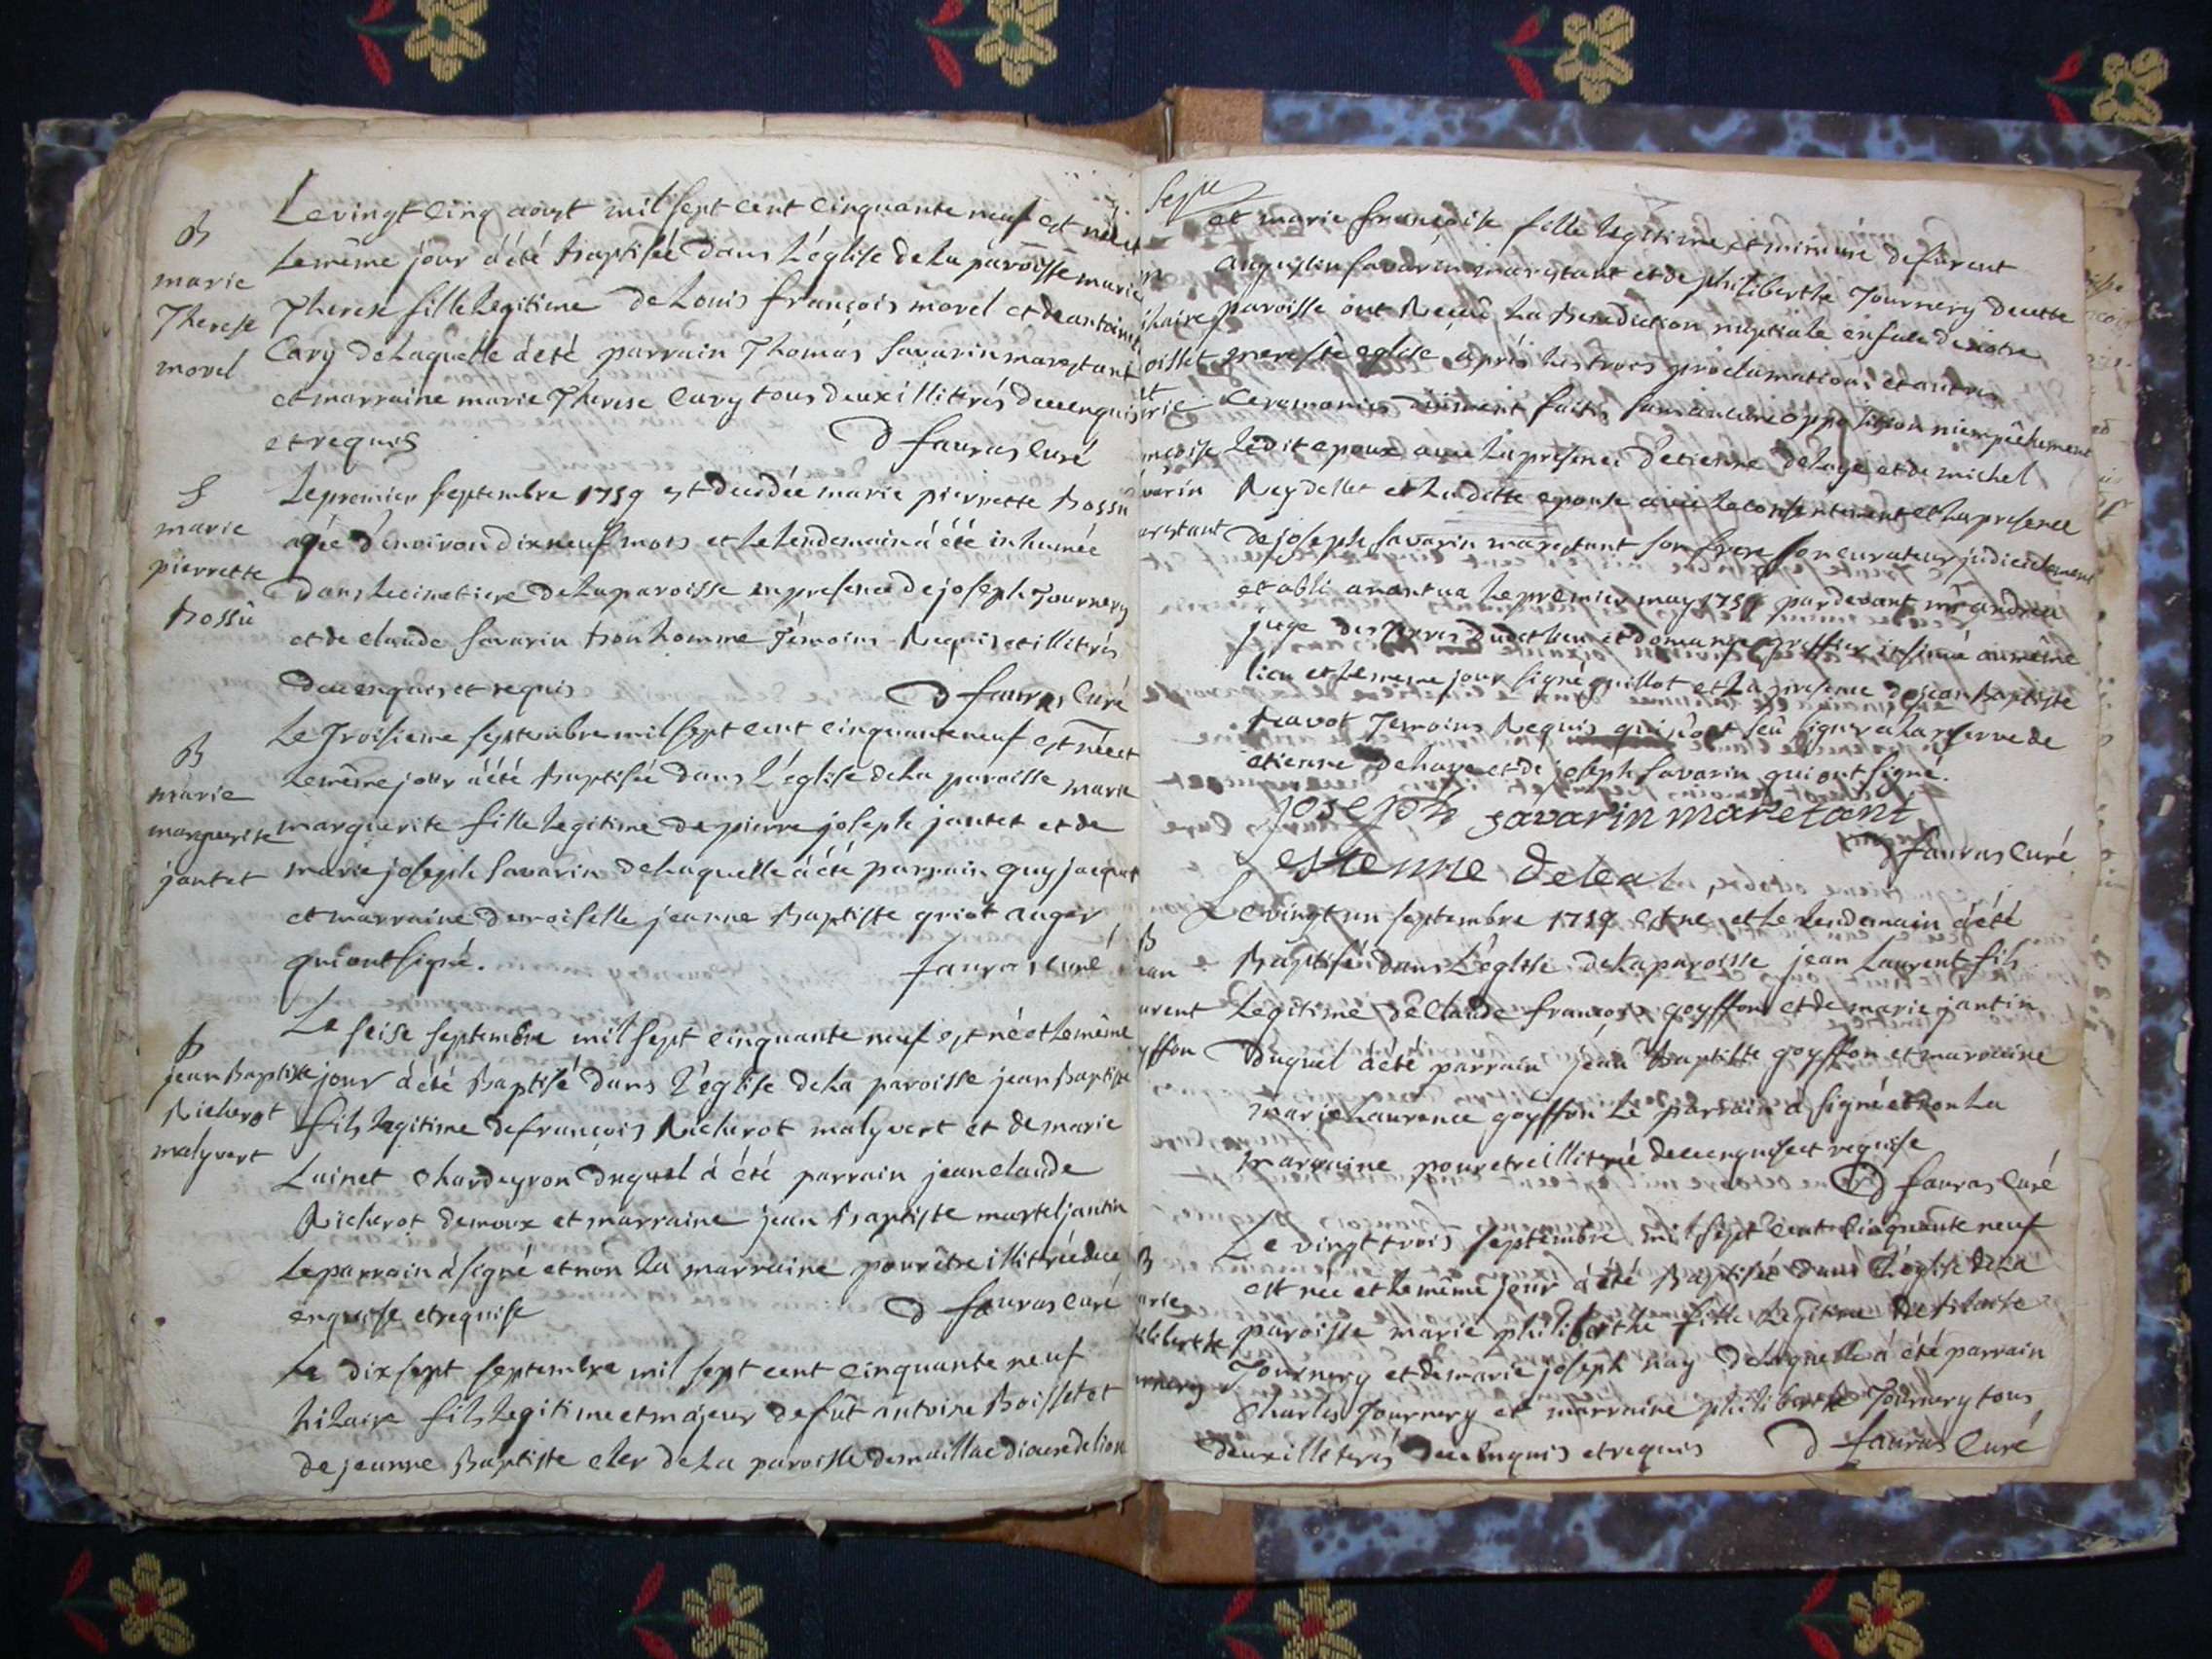 B
marie
Therese
morel
Le vingt cinq aout mil sept cent cinquante neuf est née et
le même jour à été baptisée dans L'église de La paroisse marie
Therese fille Legitime de Louis françois morel et de antoine
Cary de Laquelle à été parrain Thomas Savarin marestant
et marraine marie Therese Cary tous deux illitérés de ce enquis
et requis D fauras Curé
S
marie
pierrette
bossû
Le premier septembre 1759 est decedée marie pierrette bossu
agée d'environ dixneuf mois et Le lendemain à été inhumée
dans Le cimetiere de La paroisse en presence de joseph Tournery
et de claude Savarin bonhomme Témoins Requis et illitérés
de ce enquis et requis D fauras Curé
B
marie
marguerite
jantet
Le Troisieme septembre mil sept cent cinquante neuf est née et
Le même jour à été baptisée dans L'église de La paroisse marie
marguerite fille Legitime de pierre joseph jantet et de
marie joseph Savarin de Laquelle à été parrain guy jacquet
et marraine demoiselle jeanne Baptiste griot auger
qui ont signé. fauras curé
B
jean Baptiste
Richerot
malyvert
Le seise septembre mil sept cinquante neuf est né et Le même
jour à été Baptisé dans L'église de La paroisse jean Baptiste
fils Legitime de françois Richerot malyvert et de marie
Lainet Chardeyron duquel à été parrain jean claude
Richerot demoux et marraine jean Baptiste martel jantin
Le parrain à signé et non La marraine pour être illitérée de ce
enquise et requise D fauras curé
Le dix sept septembre mil sept cent cinquante neuf
hilaire fils Legitime et majeur de fût antoine Boisset et
de jeanne Baptiste cler de La paroisse de maillac diocese de lion
Sepre
et marie françoise fille Legitime et mineure defurent
augustin Savarin marestant et de philiberthe Tournery de cette
paroisse ont Reçeû La Benediction nuptiale en face de notre
mere Ste eglise après Les trois proclamations et autres
Ceremonies dûement faites sans aucune opposition ni empêchement
Ledit epoux avec La presence d'etienne deLaye et de michel
Reydellet et La ditte epouse avec Le consentement et La presence
de joseph Savarin marestant son frere son curateur judiciellement
etabli a nantua Le premier may 1759 pardevant mr andrea
juge des Terres dudit lieu et domange greffier insinué au même
lieu et Le meme jour signé guillot et La presence de jean Baptiste
Ravot Temoins Requis qui n'ont seû signer à La reserve de
etienne deLaye et de joseph Savarin qui ont signé.
joseph savarin maretant
estienne deleat D fauras Curé
B
ean
urent
yffon
Le vingt un septembre 1759 est né et Le Lendemain à été
Baptisé dans L'église de La paroisse jean Laurent fils
Legitime de Claude françois goyffon et de marie jantin
Duquel à été parrain jean Baptiste goyffon et marraine
marie Laurence goyffon Le parrain à signé et non La
marraine pour etre illitérée de ce enquise et requise
D fauras Curé
B
arie
iliberthe
urnery
Le vingt trois septembre mil sept cent cinquante neuf
est née et Le même jour à été Baptisée dans L'église de La
paroisse marie philiberthe fille Legitime de hilaire
Tournery et de marie joseph nay de Laquelle à été parrain
Charles Tournery et marraine philiberthe Tournery tous
deux illiterés de ce enquis et requis D fauras Curé